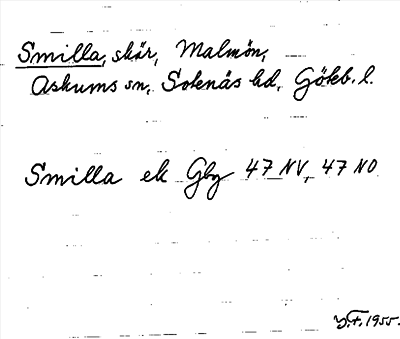 Smilla, skär, Malmön,
Askums sn, Sotenäs hd, Göteb. l.
Smilla ek Gbg 47 NV, 47 NO
Y.F. 1955.